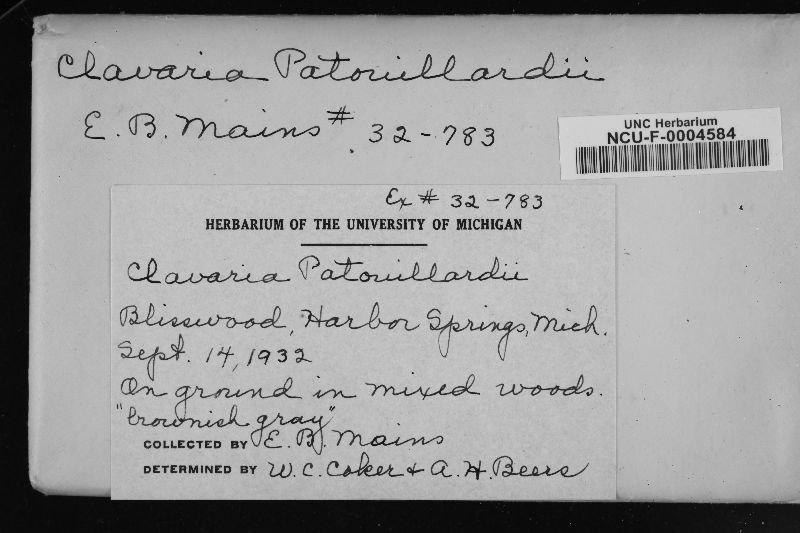 Clavaria Patouillardii
E. B. Mains # 32-783
UNC Herbarium
NCU-F-0004584
Ex # 32-783
HERBARIUM OF THE UNIVERSITY OF MICHIGAN
Clavaria Patouillardii
Blisswood, Harbor Springs, Mich.
Sept. 14, 1932
On ground in mixed woods.
"brownish gray"
COLLECTED BY E. B. Mains
DETERMINED BY W. C. Coker + A. H. Beers